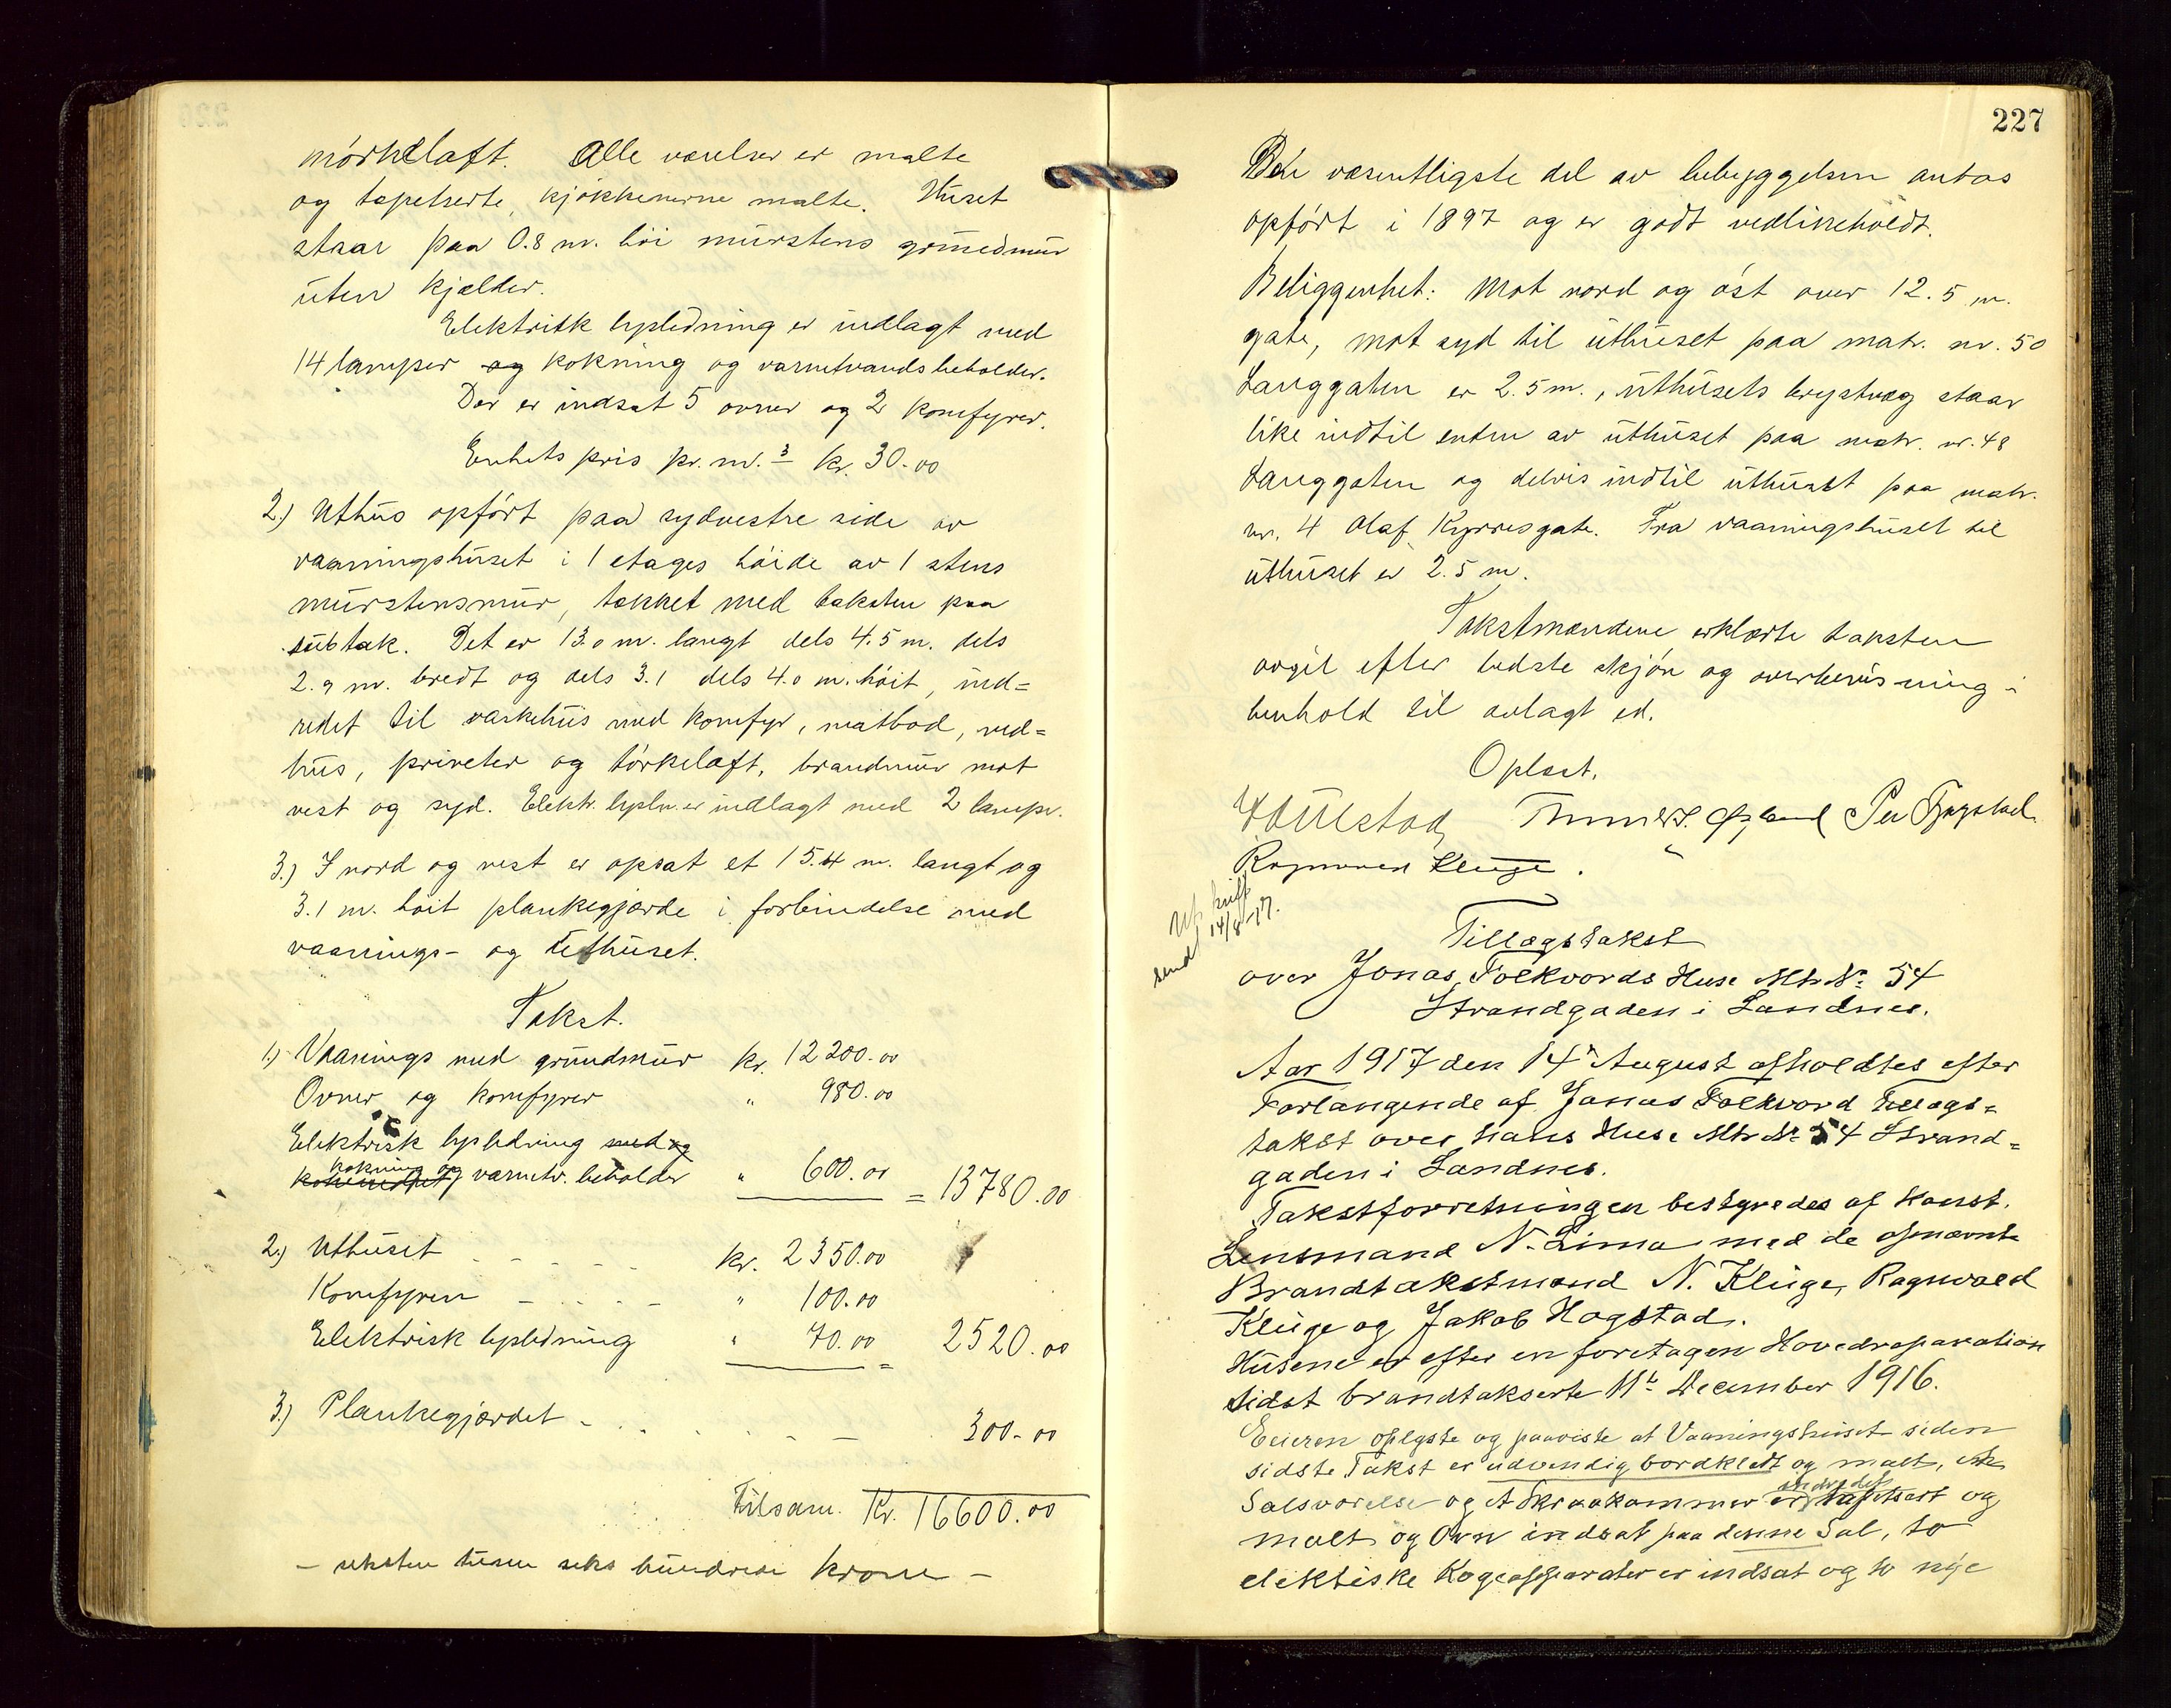 mørkeloft. Alle værelser er malte
og tapetserte, kjøkkenerne malte. Huset
staar paa 0.8 m. høi murstens grundmur
uten kjælder.
Elektrisk lysledning er indlagt med
14 lamper og kokning og varmtvandsbeholder.
Der er indsat 5 ovner og 2 komfyrer.
Enhetspris pr. m.3 kr. 30.00
2.) Uthus opført paa sydvestre side av
vaaningshuset i 1 etages høide av 1 stens
murstensmur, tækket med taksten paa
subtak. Det er 13.0 m. langt dels 4.5 m. dels
2.9 m. bredt og dels 3.1 dels 4.0 m. høit, ind=
redet til vaskehus med komfyr, matbod, ved=
hus, priveter og tørkeloft, brandmur mot
vest og syd. Elektr. lysln. er indlagt med 2 lamper.
3.) I nord og vest er opsat et 15.4 m. langt og
3.1 m. høit plankegjærde i forbindelse med
vaanings- og uthuset.
Takst.
1.) Vaanings med grundmur kr. 12200.00
Ovner og komfyrer " 980.00
Elektrisk lysledning med og
kokning og varmtv. beholder " 600.00 = 13780.00
2.) Uthuset kr. 2350.00
Komfyren " 100.00
Elektrisk lysledning " 70.00 = 2520.00
3.) Plankegjærdet 300.00
Tilsam. Kr. 16600.00
- seksten tusen seks hundrede kroner -
227
Den væsentligste del av bebyggelsen antas
opført i 1897 og er godt vedlikeholdt.
Beliggenhet: Mot nord og øst over 12.5 m.
gate, mot syd til uthuset paa matr. nr. 50
Langgaten er 2.5 m., uthusets brystvæg staar
like indtil enden av uthuset paa matr. nr. 48
Langgaten og delvis indtil uthuset paa matr.
nr. 4 Olaf Kyrresgate. Fra vaaningshuset til
uthuset er 2.5 m.
Takstmændene erklærte taksten
avgit efter bedste skjøn og overbevisning i
henhold til avlagt ed.
Oplæst.
Ragnvald Kluge.
Utskrift
send 14/8-17.
Tillægstakst
over Jonas Folkvords Huse Mtr. Nr. 54
Strandgaden i Sandnes.
Aar 1917 den 14de August afholdtes efter
Forlangende af Jonas Folkvord Tillægs=
takst over hans Huse Mtr. Nr. 54 Strand=
gaden i Sandnes.
Takstforretningen bestyredes af Konst.
Lensmand N. Lima med de opnævnte
Brandtakstmænd N. Kluge, Ragnvald
Kluge og Jakob Hogstad.
Husene er efter en foretagen Hovedreparation
sidst brandtakserte 11te December 1916.
Eieren oplyste og paaviste at Vaaningshuset siden
sidste Takst er udvendig bordklædt og malt, et
Salsværelse og et Skraakammer er indredet tapetsert og
malt og Ovn indsat paa denne Sal, to
elektiske Kogeapparater er indsat og to nye